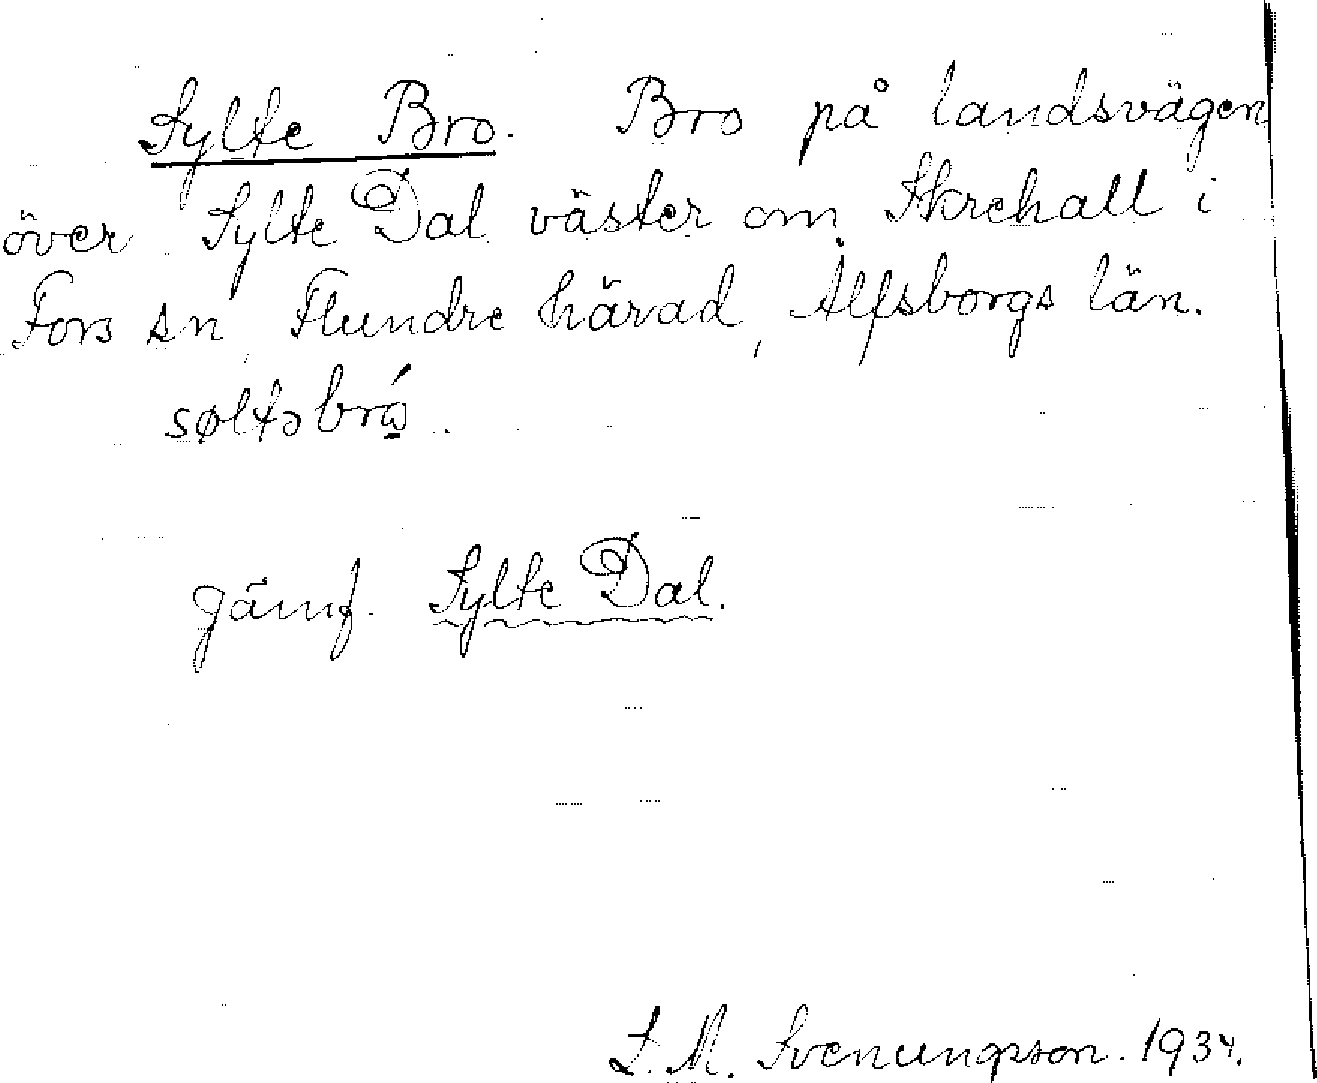 Sylte Bro. Bro på landsvägen
över Sylte Dal väster om Skrehall i
Fors sn, Flundre härad, Älfsborgs län.
søltəbró
Jämf. Sylte Dal.
S. M. Svenungsson. 1934.